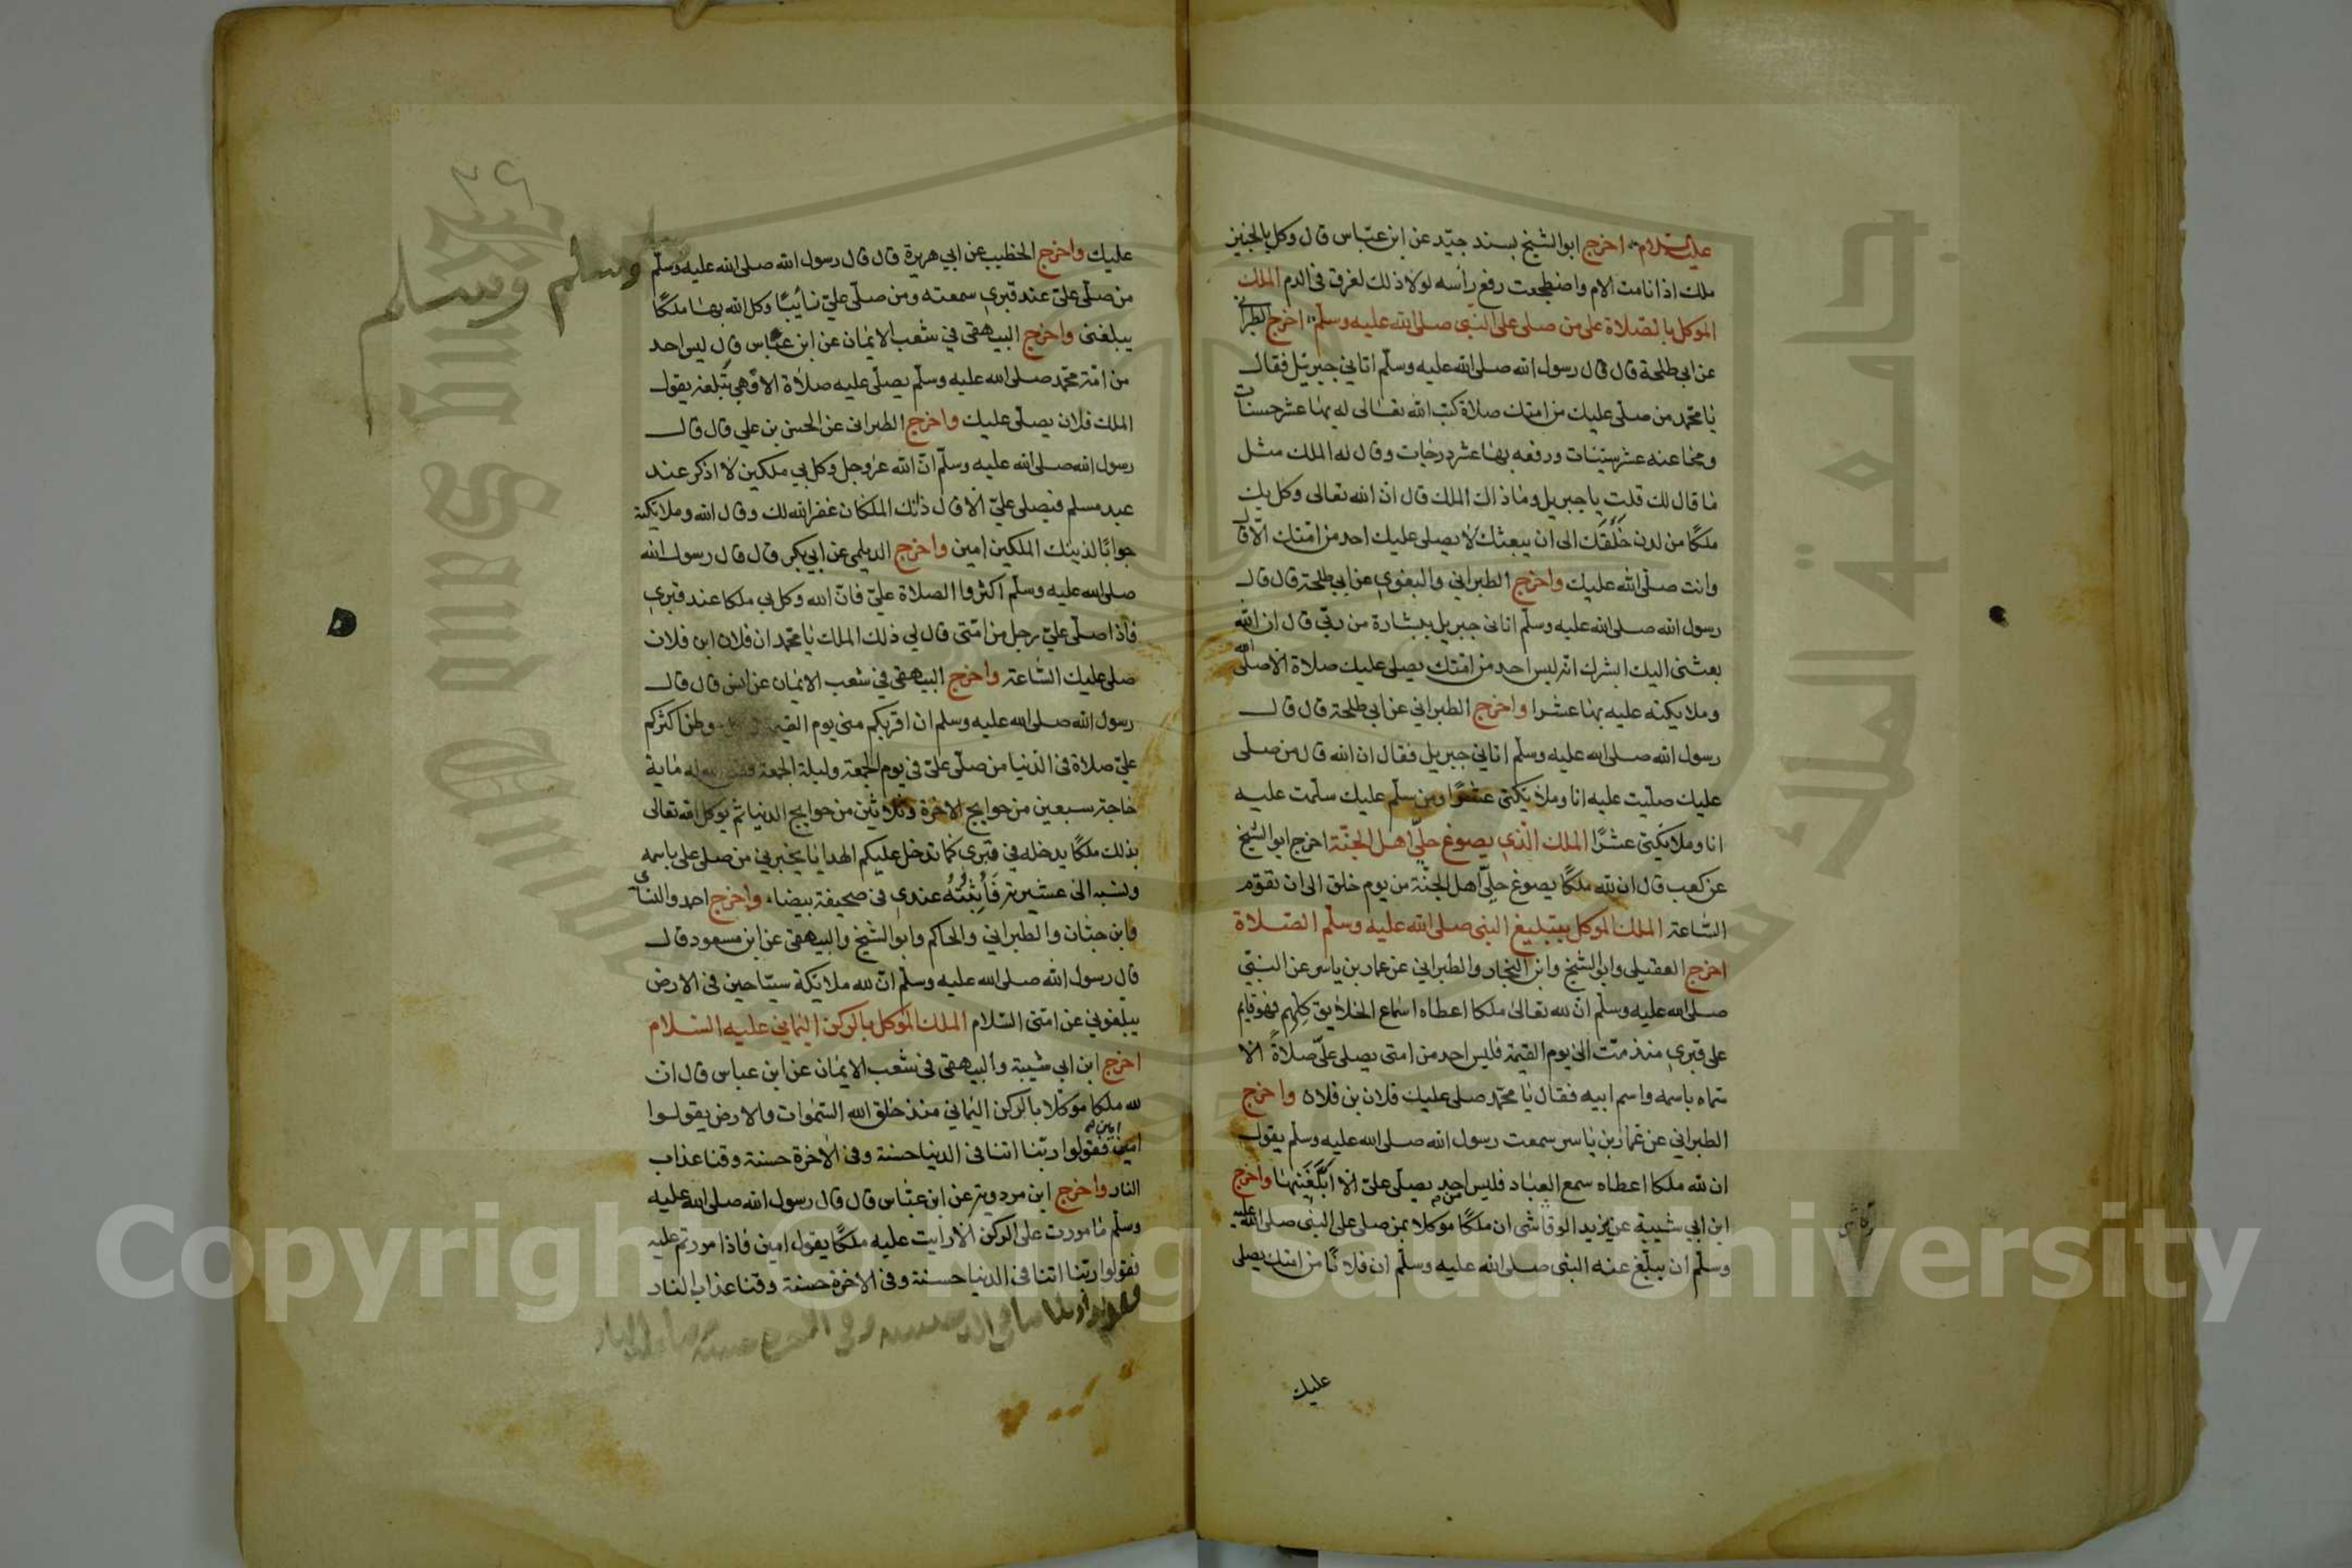 عليه السلام اخرج ابو الشيخ بسند جيد عن ابن عباس قال وكل بالجنين
ملك اذا نامت الام واضطجعت رفع رأسه لولا ذلك لغرق في الدم الملك
الموكل بالصلاة على من صلى على النبي صلى الله عليه وسلم اخرج الطبراني
عن ابي طلحة قال قال رسول الله صلى الله عليه وسلم اتاني جبريل فقال
يا محمد من صلى عليك من امتك صلاة كتب الله تعالى له بها عشر حسنات
ومحا عنه عشر سيئات ورفعه بها عشر درجات وقال له الملك مثل
ما قال لك قلت يا جبريل وماذاك الملك قال ان الله تعالى وكل بك
ملكًا من لدن خَلَقَكَ الى ان يبعثك لا يصلي عليك احد من امتك الا قال
وانت صلى الله عليك واخرج الطبراني والبغوي عن ابي طلحة قال قال
رسول الله صلى الله عليه وسلم اتاني جبريل ببشارة من ربي قال ان الله
بعثني اليك ابشرك انه ليس احد من امتك يصلي عليك صلاة الا صلى الله
وملايكته عليه بها عشرا واخرج الطبراني عن ابي طلحة قال قال
رسول الله صلى الله عليه وسلم اتاني جبريل فقال ان الله قال من صلى
عليك صليت عليه انا وملائكتي عشرًا ومن سلم عليك سلمت عليه
انا وملائكتي عشرًا الملك الذي يصوغ حلي اهل الجنة اخرج ابو الشيخ
عن كعب قال ان لله ملكًا يصوغ حلي اهل الجنة من يوم خلق الى ان تقوم
الساعة الملك الموكل بتبليغ النبي صلى الله عليه وسلم الصلاة
اخرج العقيلي وابو الشيخ وابن النجار والطبراني عن عمار بن ياسر عن النبي
صلى الله عليه وسلم ان لله تعالى ملكا اعطاه اسماع الخلايق كلهم فهو قايم
على قبري منذ مت الى يوم القيمة فليس احد من امتي يصلي علي صلاة الا
سماه باسمه واسم ابيه فقال يا محمد صلى عليك فلان بن فلان واخرج
الطبراني عن عمار بن ياسر سمعت رسول الله صلى الله عليه وسلم يقول
ان لله ملكا اعطاه سمع العباد فليس احد يصلي علي الا ابلغنيها واخرج
ابن ابي شيبة عن يزيد الرقاشي ان ملكًا موكلا بمن صلى على النبي صلى الله عليه
وسلم ان يبلغ عنه النبي صلى الله عليه وسلم ان فلانًا من امتك يصلي
عليك
عليك واخرج الخطيب عن ابي هريرة قال قال رسول الله صلى الله عليه وسلم
من صلى علي عند قبري سمعته ومن صلى علي نائيًا وكل الله بها ملكًا
يبلغني واخرج البيهقي في شعب الايمان عن ابن عباس قال ليس احد
من امة محمد صلى الله عليه وسلم يصلي عليه صلاة الا وهي تبلغه يقول
الملك فلان يصلي عليك واخرج الطبراني عن الحسن بن علي قال قال
رسول الله صلى الله عليه وسلم ان الله عز وجل وكل بي ملكين لا اذكر عند
عبد مسلم فيصلي علي الا قال ذانك الملكان غفر الله لك وقال الله وملايكته
جوابًا لذينك الملكين امين واخرج الديلمي عن ابي بكر قال قال رسول الله
صلى الله عليه وسلم اكثروا الصلاة علي فان الله وكل بي ملكا عند قبري
فاذا صلى علي رجل من امتي قال لي ذلك الملك يا محمد ان فلان ابن فلان
صلى عليك الساعة واخرج البيهقي في شعب الايمان عن انس قال قال
رسول الله صلى الله عليه وسلم ان اقربكم مني يوم القيمة وطن اكثركم
علي صلاة في الدنيا من صلى علي في يوم الجمعة وليلة الجمعة له ماية
حاجة سبعين من حوايج الاخرة وثلاثين من حوايج الدنيا ثم يوكل الله تعالى
بذلك ملكًا يدخله في قبري كما تدخل عليكم الهدايا يخبرني من صلى علي باسمه
ونسبه الى عشيرته فَأُثْبِتُهُ عندي في صحيفة بيضاء واخرج احمد والنسائي
وابن حبان والطبراني والحاكم وابو الشيخ والبيهقي عن ابن مسعود قال
قال رسول الله صلى الله عليه وسلم ان لله ملائكة سياحين في الارض
يبلغوني عن امتي السلام الملك الموكل بالركن اليماني عليه السلام
اخرج ابن ابي شيبة والبيهقي في شعب الايمان عن ابن عباس قال ان
لله ملكا موكلا بالركن اليماني منذ خلق الله السموات والارض يقولوا
امين فقولوا ربنا اتنا في الدنيا حسنة وفي الاخرة حسنة وقنا عذاب
النار واخرج ابن مردويه عن ابن عباس قال قال رسول الله صلى الله عليه
وسلم ما مررت على الركن الا رايت عليه ملكًا يقول امين فاذا مررتم عليه
فقولوا ربنا اتنا في الدنيا حسنة وفي الاخرة حسنة وقنا عذاب النار
وسلم وسلم
Copyright © King Saud University